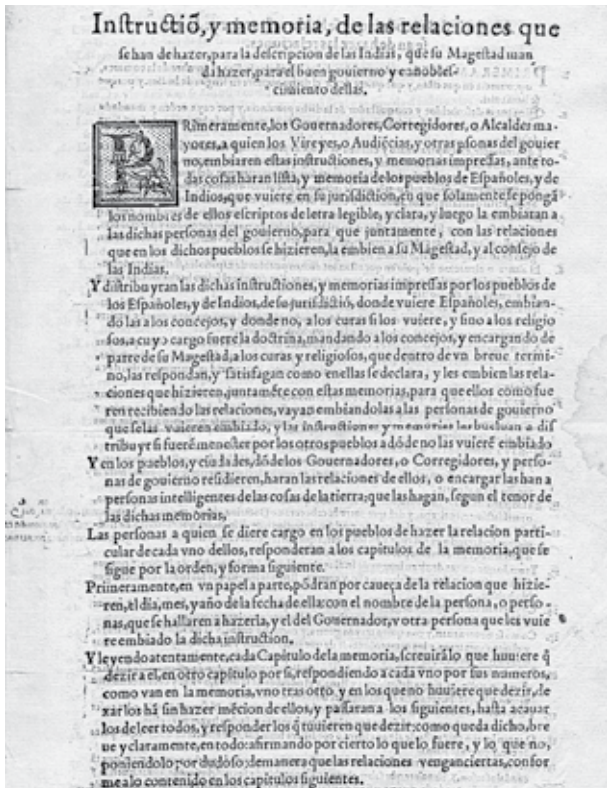 Instructiõ, y memoria, de las relaciones que
se han de hazer, para la descripcion de las Indias, que su Magestad man
da hazer, para el buen gouierno y ennobles-
cimiento dellas.
PRimeramente, los Gouernadores, Corregidores, o Alcaldes ma-
yores, a quien los Vireyes, o Audiẽcias, y otras psonas del gouier
no, embiaren estas instructiones, y memorias impressas, ante to-
das cosas haran lista, y memoria de los pueblos de Españoles, y de
Indios, que vuiere en su jurisdiction, en que solamente se pongã
los nombres de ellos escriptos de letra legible, y clara, y luego la embiaran a
las dichas personas del gouierno, para que juntamente, con las relaciones
que en los dichos pueblos se hizieren, la embien a su Magestad, y al consejo de
las Indias.
Y distribuyran las dichas instructiones, y memorias impressas por los pueblos de
los Españoles, y de Indios, de su jurisdictiõ, donde vuiere Españoles, embian-
do las a los concejos, y donde no, a los curas si los vuiere, y sino a los religio
sos, a cuyo cargo fuere la doctrina, mandando a los concejos, y encargando de
parte de su Magestad, a los curas y religiosos, que dentro de vn breue termi-
no, las respondan, y satisfagan como en ellas se declara, y les embien las rela-
ciones que hizieren, juntamẽte con estas memorias, para que ellos como fue
ren recibiendo las relaciones, vayan embiandolas a las personas de gouierno
que se las vuieren embiado, y las instructiones y memorias las bueluan a dis
tribuyr si fuerẽ menester por los otros pueblos a dõde no las vuierẽ embiado
Y en los pueblos, y ciudades, dõde los Gouernadores, o Corregidores, y perso-
nas de gouierno residieren, haran las relaciones de ellos, o encargar las han a
personas intelligentes de las cosas de la tierra, que las hagan, segun el tenor de
las dichas memorias,
Las personas a quien se diere cargo en los pueblos de hazer la relacion parti-
cular de cada vno dellos, responderan a los capitulos de la memoria, que se
sigue por la orden, y forma siguiente.
Primeramente, en vn papel a parte, põdran por caueça de la relacion que hizie-
ren, el dia, mes, y año de la fecha de ella: con el nombre de la persona, o perso-
nas, que se hallaren a hazerla, y el del Gouernador, v otra persona que les vuie
re embiado la dicha instruction.
Y leyendo atentamente, cada Capitulo de la memoria, screuirã lo que huuiere q̃
dezir a el, en otro capitulo por si, respondiendo a cada vno por sus numeros,
como van en la memoria, vno tras otro, y en los que no huuiere que dezir, de
xarlos hã sin hazer mẽcion de ellos, y passaran a los siguientes, hasta acauar
los de leer todos, y responder los q̃ tuuieren que dezir: como queda dicho, bre
ue y claramente, en todo: afirmando por cierto lo que lo fuere, y lo que no,
poniendolo por dudoso: de manera que las relaciones vengan ciertas, confor
me a lo contenido en los capitulos siguientes.